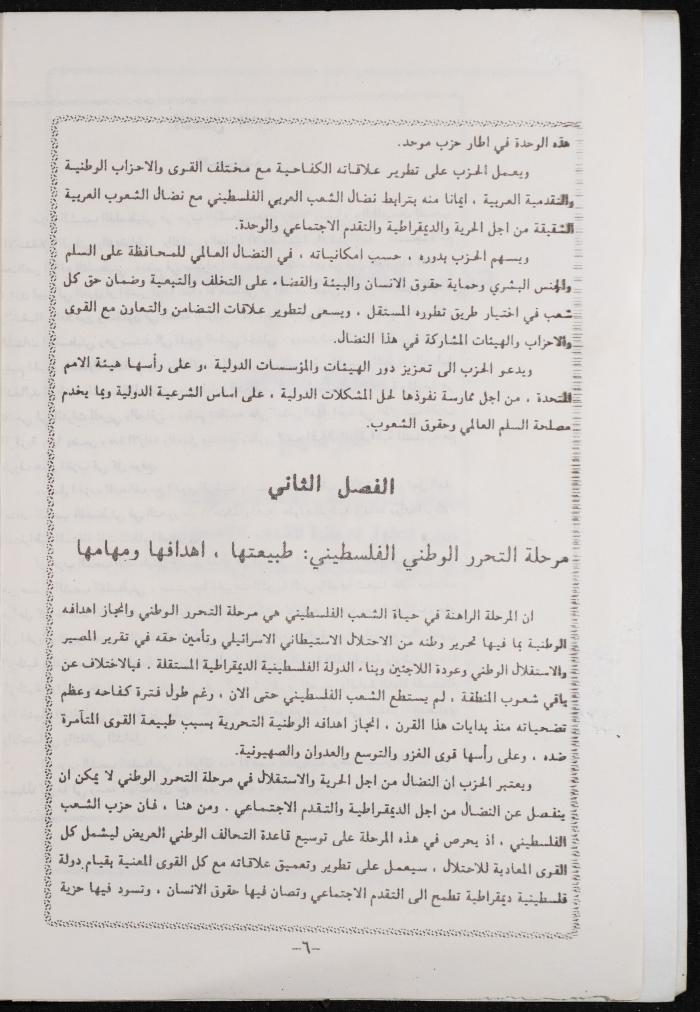 هذه الوحدة في اطار حزب موحد.
ويعمل الحزب على تطوير علاقاته الكفاحية مع مختلف القوى والاحزاب الوطنية
والتقدمية العربية ، ايمانا منه بترابط نضال الشعب العربي الفلسطيني مع نضال الشعوب العربية
الشقيقة من اجل الحرية والديمقراطية والتقدم الاجتماعي والوحدة.
ويسهم الحزب بدوره ، حسب امكانياته ، في النضال العالمي للمحافظة على السلم
والجنس البشري وحماية حقوق الانسان والبيئة والقضاء على التخلف والتبعية وضمان حق كل
شعب في اختيار طريق تطوره المستقل ، ويسعى لتطوير علاقات التضامن والتعاون مع القوى
والاحزاب والهيئات المشاركة في هذا النضال.
ويدعو الحزب الى تعزيز دور الهيئات والمؤسسات الدولية ،و على رأسها هيئة الامم
المتحدة ، من اجل ممارسة نفوذها لحل المشكلات الدولية ، على اساس الشرعية الدولية وبما يخدم
مصلحة السلم العالمي وحقوق الشعوب.
الفصل الثاني
مرحلة التحرر الوطني الفلسطيني: طبيعتها ، اهدافها ومهامها
ان المرحلة الراهنة في حياة الشعب الفلسطيني هي مرحلة التحرر الوطني وانجاز اهدافه
الوطنية بما فيها تحرير وطنه من الاحتلال الاستيطاني الاسرائيلي وتأمين حقه في تقرير المصير
والاستقلال الوطني وعودة اللاجئين وبناء الدولة الفلسطينية الديمقراطية المستقلة . فبالاختلاف عن
باقي شعوب المنطقة ، لم يستطع الشعب الفلسطيني حتى الان ، رغم طول فترة كفاحه وعظم
تضحياته منذ بدايات هذا القرن ، انجاز اهدافه الوطنية التحررية بسبب طبيعة القوى المتآمرة
ضده ، وعلى رأسها قوى الغزو والتوسع والعدوان والصهيونية.
ويعتبر الحزب ان النضال من اجل الحرية والاستقلال في مرحلة التحرر الوطني لا يمكن ان
ينفصل عن النضال من اجل الديمقراطية والتقدم الاجتماعي . ومن هنا ، فان حزب الشعب
الفلسطيني ، اذ يحرص في هذه المرحلة على توسيع قاعدة التحالف الوطني العريض ليشمل كل
القوى المعادية للاحتلال ، سيعمل على تطوير وتعميق علاقاته مع كل القوى المعنية بقيام دولة
فلسطينية ديمقراطية تطمح الى التقدم الاجتماعي وتصان فيها حقوق الانسان ، وتسود فيها حرية
–٦–